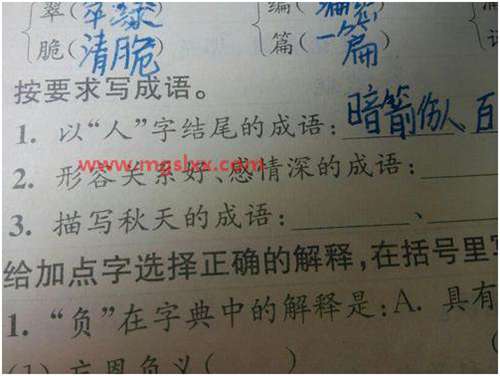 翠(翠绿
编(
脆(清脆)
篇(一篇)
按要求写成语。
1. 以“人”字结尾的成语:暗箭伤人 百
www.mgslxx.com
2. 形容关系好、感情深的成语:
3. 描写秋天的成语:、
给加点字选择正确的解释,在括号里
1. “负”在字典中的解释是:A. 具有
(1) 忘恩负义( )